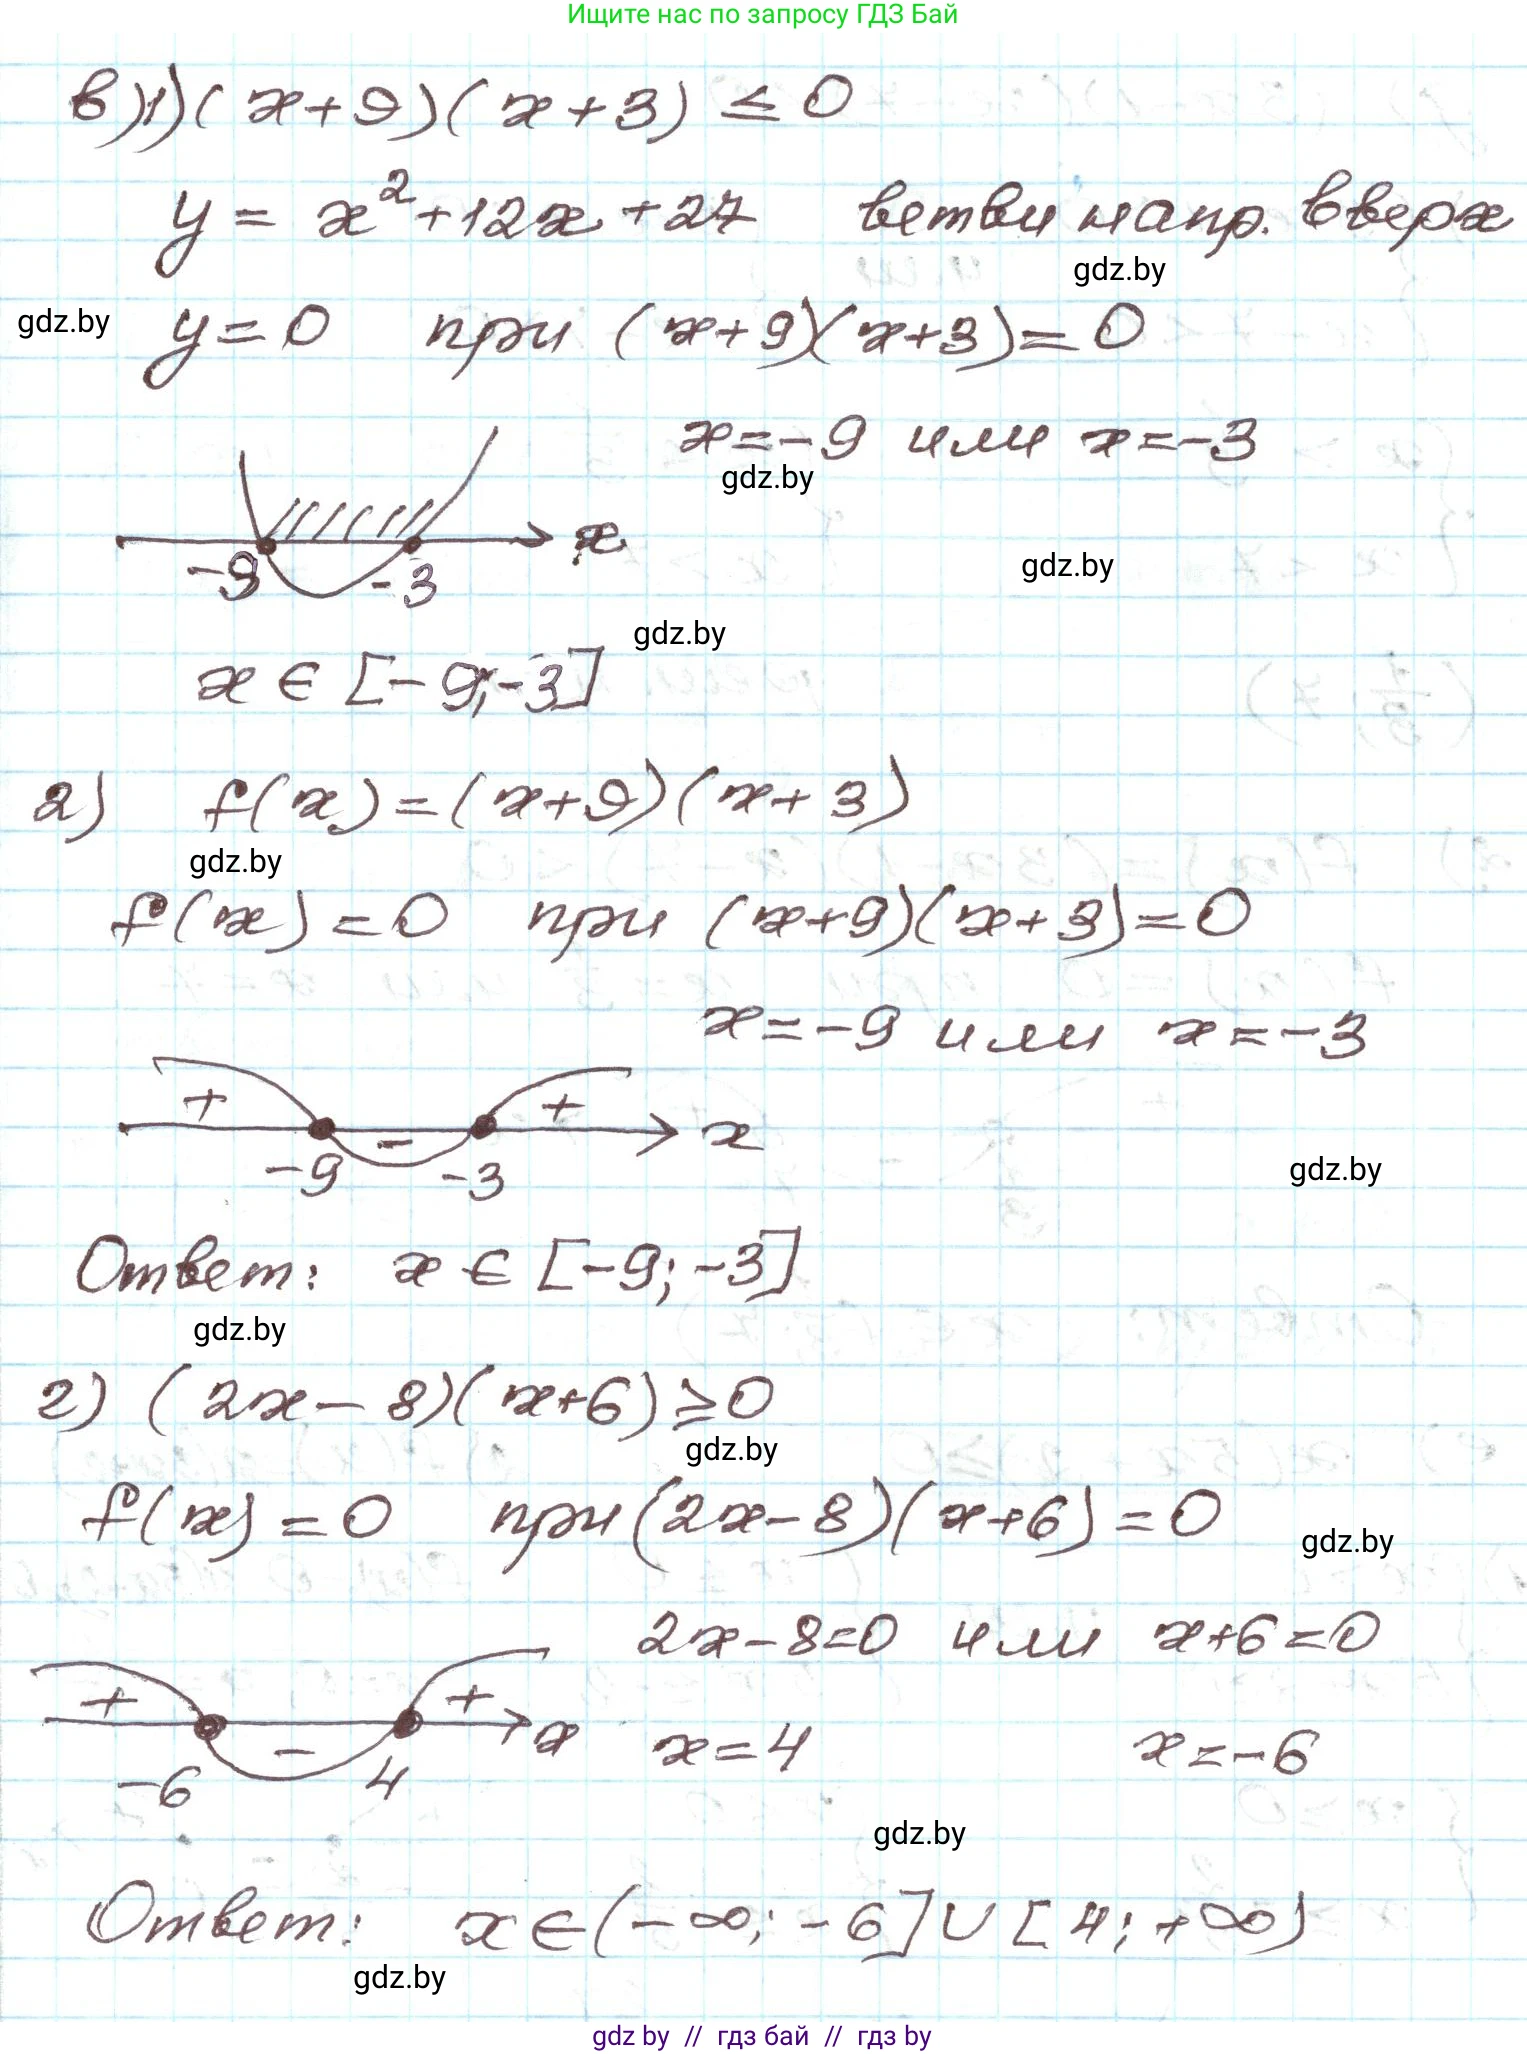 Ищите нас по запросу ГДЗ Бай
в) 1) (x+9)(x+3) ≤ 0
y = x²+12x+27 ветви напр. вверх
gdz.by
gdz.by y=0 при (x+9)(x+3)=0
x=-9 или x=-3
gdz.by
x
-9 -3
gdz.by
gdz.by
x ∈ [-9;-3]
2) f(x)=(x+9)(x+3)
gdz.by
f(x)=0 при (x+9)(x+3)=0
x=-9 или x=-3
+ - + x
-9 -3
gdz.by
Ответ: x ∈ [-9; -3]
gdz.by
г) (2x-8)(x+6)≥0
gdz.by
f(x)=0 при (2x-8)(x+6)=0
gdz.by
2x-8=0 или x+6=0
+ - + x
-6 4
x=4 x=-6
gdz.by
Ответ: x∈(-∞; -6]∪[4; +∞)
gdz.by
gdz by // гдз бай // гдз by